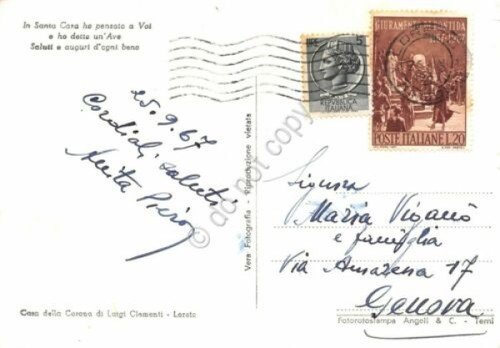 In Santa Casa ho pensato a Voi
e ho detto un'Ave
Saluti e auguri d'ogni bene
25.9.67
Cordiali saluti
Anita Piero
Vera Fotografia - Riproduzione vietata
Casa della Corona di Luigi Clementi - Loreto
L. 5
REPUBBLICA
ITALIANA
GIURAMENTO DI PONTIDA
1167-1967
POSTE ITALIANE L.20
Signora
Maria Viganò
e famiglia
Via Amarena 17
Genova
Fotorotostampa Angeli & C. - Terni
do not copy